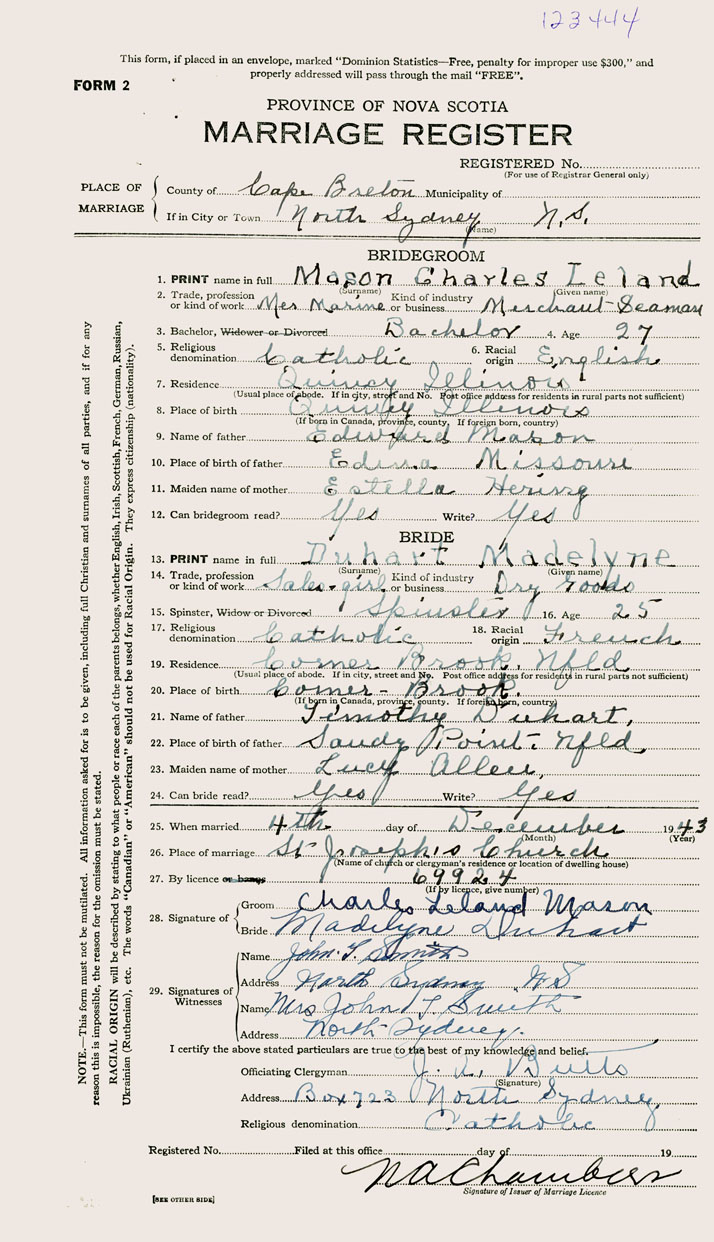 123444
This form, if placed in an envelope, marked "Dominion Statistics—Free, penalty for improper use $300," and
properly addressed will pass through the mail "FREE".
FORM 2
PROVINCE OF NOVA SCOTIA
MARRIAGE REGISTER
REGISTERED No.
(For use of Registrar General only)
PLACE OF MARRIAGE
County of Cape Breton Municipality of
If in City or Town North Sydney N.S.
(Name)
BRIDEGROOM
1. PRINT name in full Mason Charles Leland
(Surname) (Given name)
2. Trade, profession or kind of work Mer Marine Kind of industry or business Merchant Seaman
3. Bachelor, Widower or Divorced Bachelor 4. Age 27
5. Religious denomination Catholic 6. Racial origin English
7. Residence Quincy Illinois
(Usual place of abode. If in city, street and No. Post office address for residents in rural parts not sufficient)
8. Place of birth Quincy Illinois
(If born in Canada, province, county. If foreign born, country)
9. Name of father Edward Mason
10. Place of birth of father Edina Missouri
11. Maiden name of mother Estella Hering
12. Can bridegroom read? Yes Write? Yes
BRIDE
13. PRINT name in full Duhart Madelyne
(Surname) (Given name)
14. Trade, profession or kind of work Sales-girl Kind of industry or business Dry Goods
15. Spinster, Widow or Divorced Spinster 16. Age 25
17. Religious denomination Catholic 18. Racial origin French
19. Residence Corner Brook, Nfld
(Usual place of abode. If in city, street and No. Post office address for residents in rural parts not sufficient)
20. Place of birth Corner-Brook.
(If born in Canada, province, county. If foreign born, country)
21. Name of father Timothy Duhart,
22. Place of birth of father Sandy Point- Nfld,
23. Maiden name of mother Lucy Allen,
24. Can bride read? Yes Write? Yes
25. When married 4th day of December 1943
(Month) (Year)
26. Place of marriage St Joseph's Church
(Name of church or clergyman's residence or location of dwelling house)
27. By licence or banns 69924
(If by licence, give number)
28. Signature of
Groom Charles Leland Mason
Bride Madelyne Duhart
29. Signatures of Witnesses
Name John T. Smith
Address North Sydney NS
Name Mrs John T Smith
Address North Sydney.
I certify the above stated particulars are true to the best of my knowledge and belief.
Officiating Clergyman J. L. Butts
(Signature)
Address Box 723 North Sydney,
Religious denomination Catholic
Registered No. Filed at this office day of 19
NA Chambers
Signature of Issuer of Marriage Licence
[SEE OTHER SIDE]
NOTE.—This form must not be mutilated. All information asked for is to be given, including full Christian and surnames of all parties, and if for any
reason this is impossible, the reason for the omission must be stated.
RACIAL ORIGIN will be described by stating to what people or race each of the parents belongs, whether English, Irish, Scottish, French, German, Russian,
Ukrainian (Ruthenian), etc. The words "Canadian" or "American" should not be used for Racial Origin. They express citizenship (nationality).